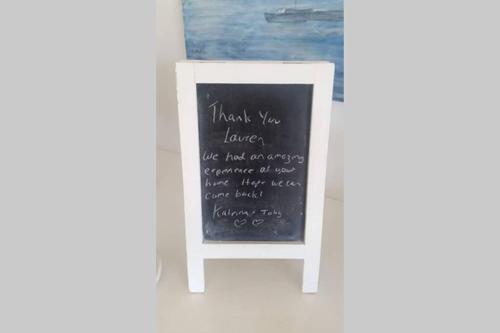 Thank You
Lauren
We had an amazing
experience at your
home. Hope we can
come back!
Katrina + Toby
♡ ♡